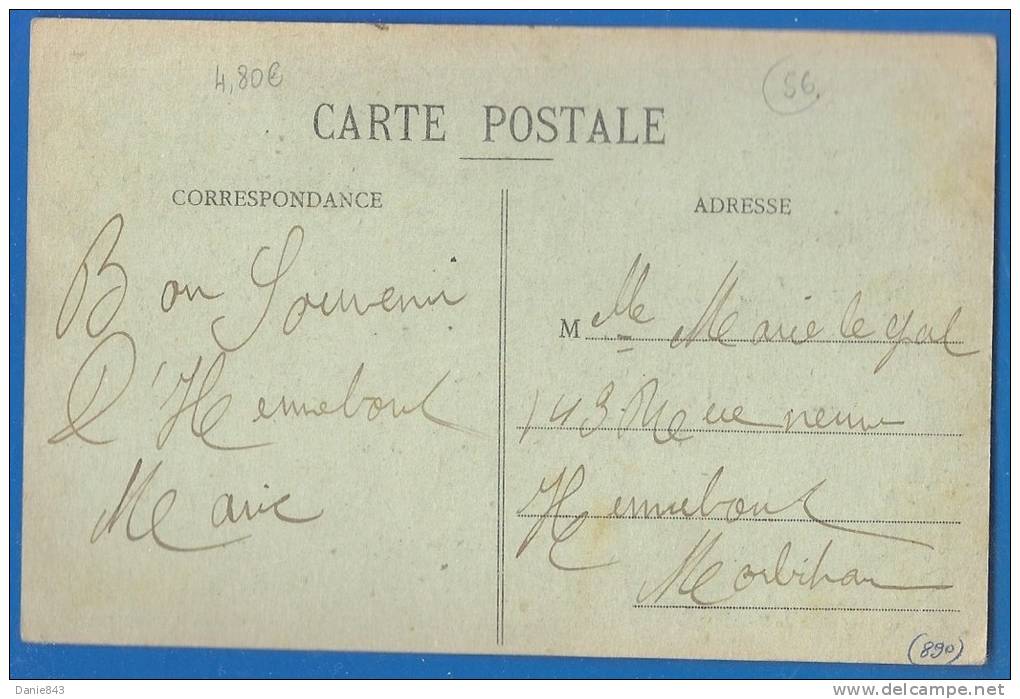 4,80€
56
CARTE POSTALE
CORRESPONDANCE
Bon Souvenir
D'Hennebont
Marie
ADRESSE
M Me Marie le gal
143 Rue neuve
Hennebont
Morbihan
(890)
Danie843
www.delcampe.net